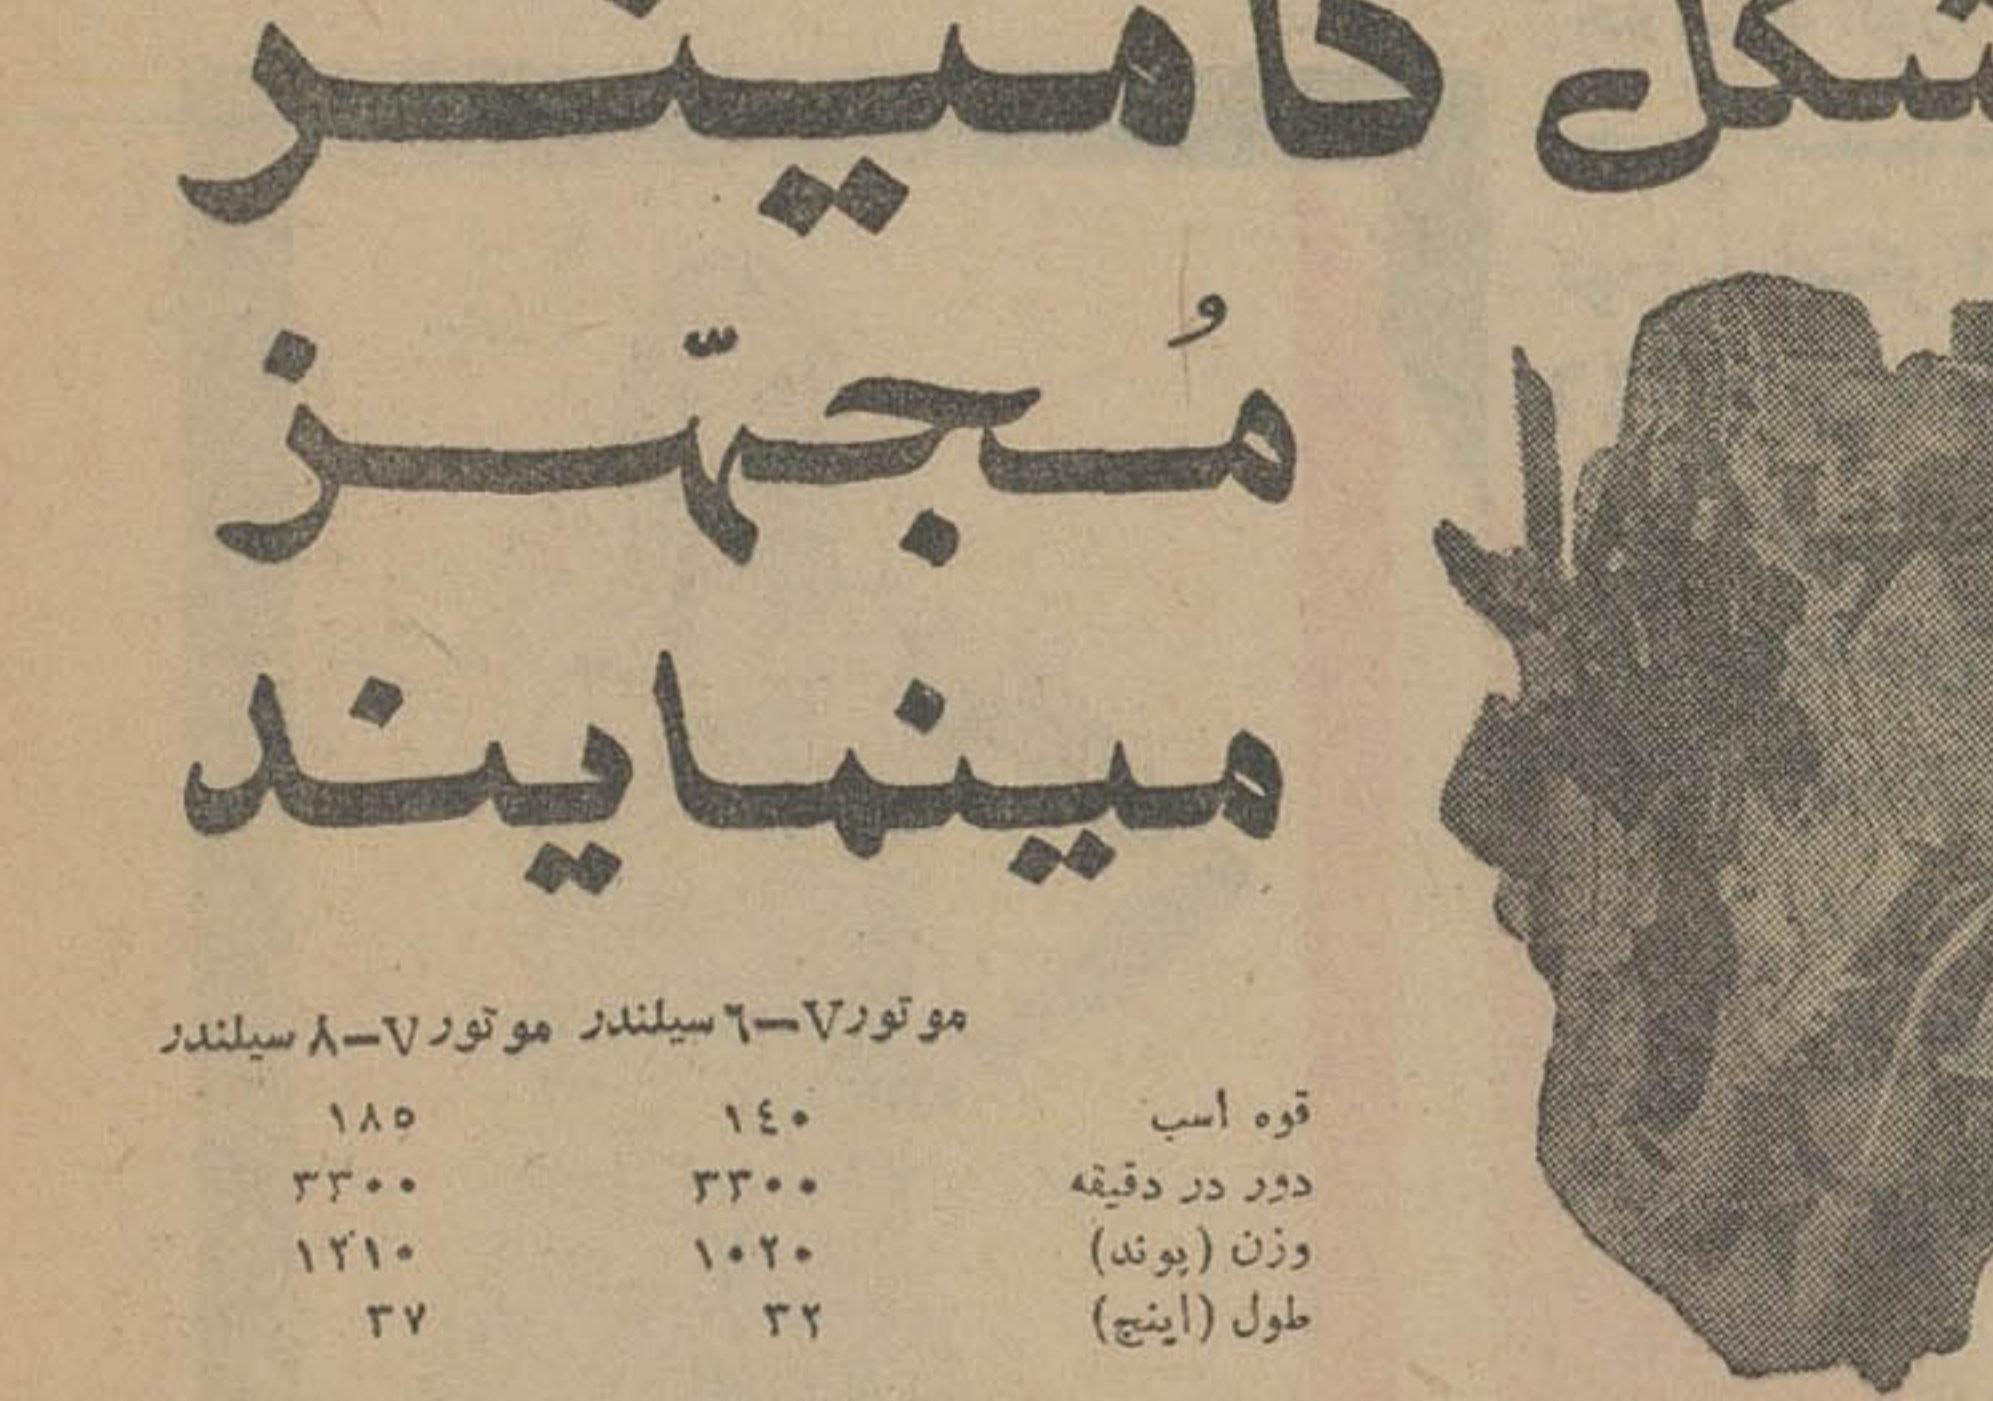 شکل کامینز
مُجهّز
مینمایند
موتور V-٦ سیلندر موتور V-٨ سیلندر
قوه اسب ١٤٠ ١٨٥
دور در دقیقه ٣٣٠٠ ٣٣٠٠
وزن (پوند) ١٠٢٠ ١٢١٠
طول (اینچ) ٣٢ ٣٧